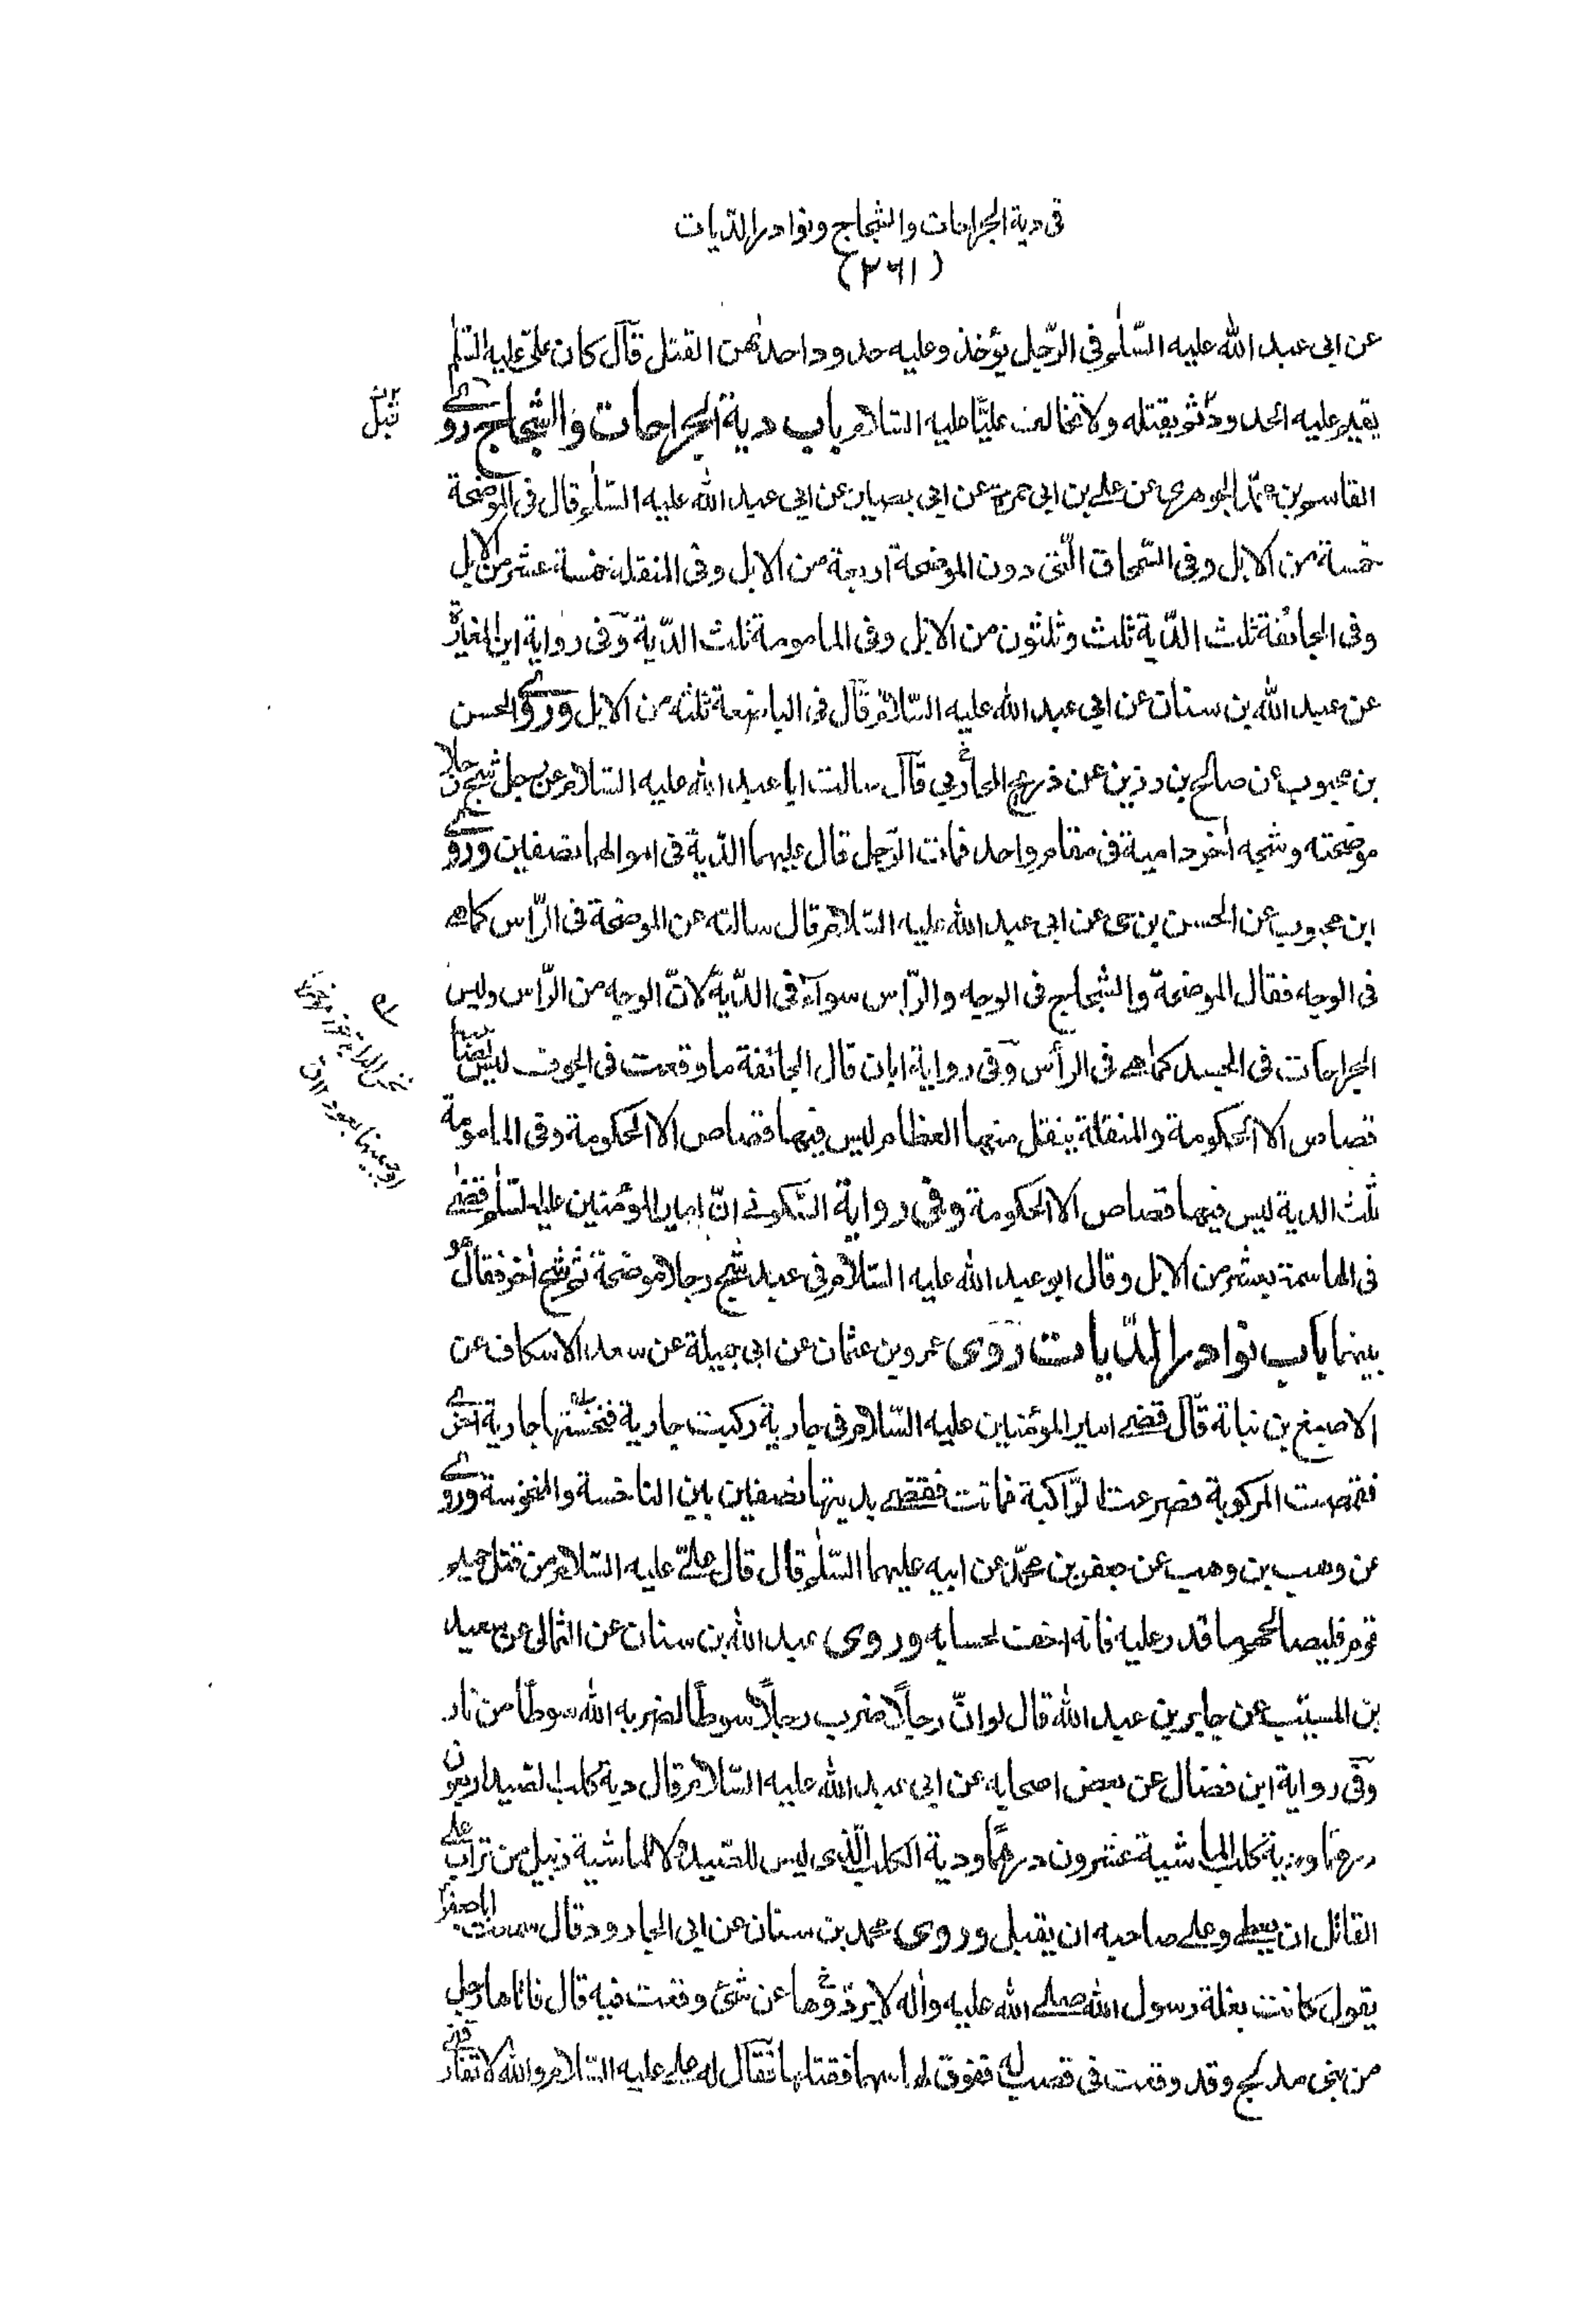 فى دية الجراحات والشجاج ونوادر الدّيات
(٢٦١)
عن ابى عبد الله عليه السّلم فى الرّجل يؤخذ وعليه حدود احدٰهن القتل قال كان علىّ عليه السّلم
يقيم عليه الحدود ثم يقتله ولا تخالف عليًّا عليه السّلام باب دية الجراحات والشجاج روى
القاسم بن محمّد الجوهرى عن على بن ابى حمزة عن ابى بصير عن ابى عبد الله عليه السّلم قال فى الموضحة
خمسة من الابل وفى السّمحاق الّتى دون الموضحة اربعة من الابل وفى المنقلة خمسة عشر من الابل
وفى الجائفة ثلث الدّية ثلث وثلثون من الابل وفى المامومة ثلث الدّية وفى رواية ابن المغيرة
عن عبد الله بن سنان عن ابى عبد الله عليه السّلام قال فى الباضعة ثلثة من الابل وروى الحسن
بن محبوب عن صالح بن رزين عن ذريح المحاربي قال سالت ابا عبد الله عليه السّلام عن رجل شج رجلا
موضحته وشجه اٰخر دامية فى مقام واحد فمات الرّجل قال عليهما الدّية فى اموالهما نصفين وروى
ابن محبوب عن الحسن بن حى عن ابى عبد الله عليه السّلام قال سالته عن الموضحة فى الرّاس كما هى
فى الوجه فقال الموضحة والشجاج فى الوجه والرّاس سوآء فى الدّية لانّ الوجه من الرّاس وليس
الجراحات فى الجسد كما هى فى الرأس وفى رواية ابان قال الجائفة ما وقعت فى الجوف ليس لصاحبها
قصاص الا الحكومة والمنقلة ينقل منهما العظام ليس فيها قصاص الا الحكومة وفى المامومة
ثلث الدية ليس فيها قصاص الا الحكومة وفى رواية السّكونى انّ امير المؤمنين عليه السّلم قضى
فى الهاشمة بعشر من الابل وقال ابو عبد الله عليه السّلام فى عبد شج رجلا موضحة ثم شج اٰخر فقال هو
بينهما باب نوادر الدّيات روى عمرو بن عثمان عن ابى جميلة عن سعد الاسكاف عن
الاصبغ بن نباتة قال قضى امير المؤمنين عليه السّلام فى جارية ركبت جارية فنخستها جارية اخرى
فقمصت المركوبة فصرعت الرّاكبة فماتت فقضى بديتها نصفين بين الناخسة والمنخوسة وروى
عن وهب بن وهب عن جعفر بن محمّد عن ابيه عليهما السّلم قال قال علىّ عليه السّلام من قتل حميم
قوم فليصالحهم ما قدر عليه فانه اخف لحسابه وروى عبد الله بن سنان عن الثمالى عن سعيد
بن المسيّب عن جابر بن عبد الله قال لو انّ رجلًا ضرب رجلًا سوطًا لضربه الله سوطًا من نار
وفى رواية ابن فضال عن بعض اصحابه عن ابى عبد الله عليه السّلام قال دية كلب الصّيد اربعون
درهمًا ودية كلب الماشية عشرون درهمًا ودية الكلب الّذى ليس للصّيد ولا للماشية زبيل من تراب على
القاتل ان يعطى وعلى صاحبه ان يقبل وروى محمد بن سنان عن ابى الجارود قال سمعت ابا جعفر
يقول كانت بغلة رسول الله صلى الله عليه واٰله لا يردّوها عن شئ وقعت فيه قال فاتاها رجل
من بنى مدلج وقد وقعت فى قصب له ففوق لها سهما فقتلها فقال له على عليه السّلام والله لا تفارقنى